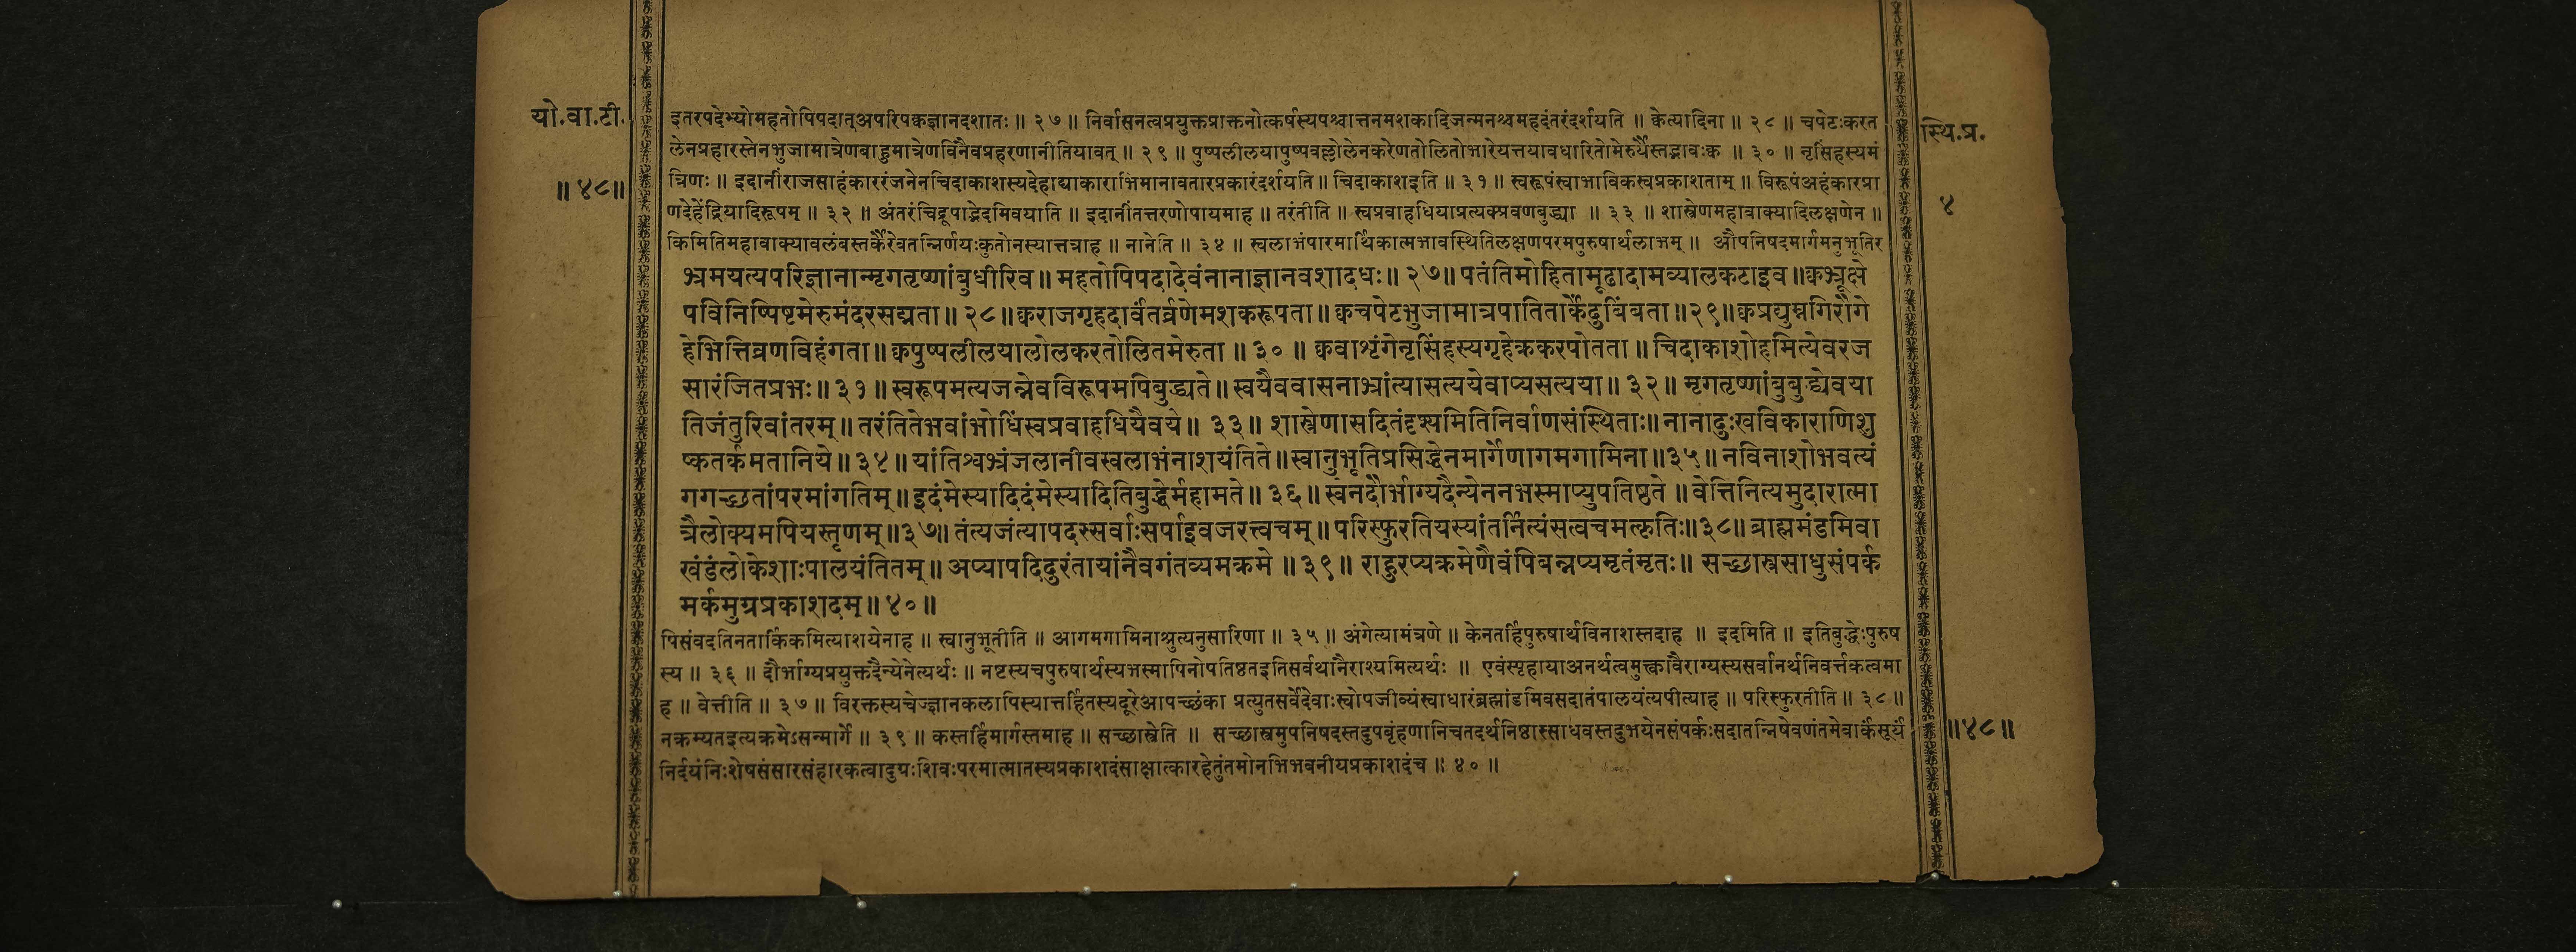 यो.वा.टी.
॥ ४८॥
स्थि.प्र.
४
इतरपदेभ्योमहतोपिपदात्अपरिपक्वज्ञानदशातः ॥ २७ ॥ निर्वासनत्वप्रयुक्तप्राक्तनोत्कर्षस्यपश्चात्तनमशकादिजन्मनश्चमहदंतरंदर्शयति ॥ क्वेत्यादिना ॥ २८ ॥ चपेटःकरत
लेनप्रहारस्तेनभुजामात्रेणबाहुमात्रेणविनैवप्रहरणानीतियावत् ॥ २९ ॥ पुष्पलीलयापुष्पवल्लोलेनकरेणतोलितोभारेयत्तयावधारितोमेरुर्यैस्तद्भावःक्व ॥ ३० ॥ नृसिंहस्यमं
त्रिणः ॥ इदानींराजसाहंकाररंजनेनचिदाकाशस्यदेहाद्याकाराभिमानावतारप्रकारंदर्शयति ॥ चिदाकाशइति ॥ ३१ ॥ स्वरूपंस्वाभाविकस्वप्रकाशताम् ॥ विरूपंअहंकारप्रा
णदेहेंद्रियादिरूपम् ॥ ३२ ॥ अंतरंचिद्रूपाद्भेदमिवयाति ॥ इदानींतत्तरणोपायमाह ॥ तरंतीति ॥ स्वप्रवाहधियाप्रत्यक्प्रवणबुद्ध्या ॥ ३३ ॥ शास्त्रेणमहावाक्यादिलक्षणेन ॥
किमितिमहावाक्यावलंबस्तर्कैरेवतन्निर्णयःकुतोनस्यात्तत्राह ॥ नानेति ॥ ३४ ॥ स्वलाभंपारमार्थिकात्मभावस्थितिलक्षणपरमपुरुषार्थलाभम् ॥ औपनिषदमार्गमनुभूतिर
भ्रमयत्यपरिज्ञानान्मृगतृष्णांबुधीरिव॥ महतोपिपदादेवंनानाज्ञानवशादधः॥ २७॥ पतंतिमोहितामूढादामव्यालकटाइव॥क्वभ्रूक्षे
पविनिष्पिष्टमेरुमंदरसह्यता॥ २८॥क्वराजगृहदार्वंतर्व्रणेमशकरूपता॥ क्वचपेटभुजामात्रपातितार्केंदुबिंबता॥२९॥क्वप्रद्युम्नगिरौगे
हेभित्तिव्रणविहंगता॥ क्वपुष्पलीलयालोलकरतोलितमेरुता ॥ ३० ॥ क्ववाशृंगेनृसिंहस्यगृहेक्रकरपोतता॥ चिदाकाशोहमित्येवरज
सारंजितप्रभः॥ ३१॥ स्वरूपमत्यजन्नेवविरूपमपिबुद्ध्यते॥ स्वयैववासनाभ्रांत्यासत्ययेवाप्यसत्यया॥ ३२॥ मृगतृष्णांबुबुद्ध्येवया
तिजंतुरिवांतरम्॥ तरंतितेभवांभोधिंस्वप्रवाहधियैवये॥ ३३॥ शास्त्रेणासदितंदृश्यमितिनिर्वाणसंस्थिताः॥ नानादुःखविकाराणिशु
ष्कतर्कमतानिये॥ ३४॥ यांतिश्वभ्रंजलानीवस्वलाभंनाशयंतिते॥ स्वानुभूतिप्रसिद्धेनमार्गेणागमगामिना॥३५॥ नविनाशोभवत्यं
गगच्छतांपरमांगतिम्॥ इदंमेस्यादिदंमेस्यादितिबुद्धेर्महामते॥ ३६॥ स्वेनदौर्भाग्यदैन्येननभस्माप्युपतिष्ठते ॥ वेत्तिनित्यमुदारात्मा
त्रैलोक्यमपियस्तृणम्॥३७॥ तंत्यजंत्यापदस्सर्वाःसर्पाइवजरत्त्वचम्॥ परिस्फुरतियस्यांतर्नित्यंसत्वचमत्कृतिः॥३८॥ ब्राह्ममंडमिवा
खंडंलोकेशाःपालयंतितम्॥ अप्यापदिदुरंतायांनैवगंतव्यमक्रमे ॥ ३९॥ राहुरप्यक्रमेणैवंपिबन्नप्यमृतंमृतः॥ सच्छास्त्रसाधुसंपर्क
मर्कमुग्रप्रकाशदम्॥ ४०॥
पिसंवदतिनतार्किकमित्याशयेनाह ॥ स्वानुभूतीति ॥ आगमगामिनाश्रुत्यनुसारिणा ॥ ३५ ॥ अंगेत्यामंत्रणे ॥ केनतर्हिपुरुषार्थविनाशस्तदाह ॥ इदमिति ॥ इतिबुद्धेःपुरुष
स्य ॥ ३६ ॥ दौर्भाग्यप्रयुक्तदैन्येनेत्यर्थः ॥ नष्टस्यचपुरुषार्थस्यभस्मापिनोपतिष्ठतइतिसर्वथानैराश्यमित्यर्थः ॥ एवंस्पृहायाअनर्थत्वमुक्त्वावैराग्यस्यसर्वानर्थनिवर्त्तकत्वमा
ह ॥ वेत्तीति ॥ ३७ ॥ विरक्तस्यचेज्ज्ञानकलापिस्यात्तर्हितस्यदूरेआपच्छंका प्रत्युतसर्वेदेवाःस्वोपजीव्यंस्वाधारंब्रह्मांडमिवसदातंपालयंत्यपीत्याह ॥ परिस्फुरतीति ॥ ३८ ॥
नक्रम्यतइत्यक्रमेऽसन्मार्गे ॥ ३९ ॥ कस्तर्हिमार्गस्तमाह ॥ सच्छास्त्रेति ॥ सच्छास्त्रमुपनिषदस्तदुपबृंहणानिचतदर्थनिष्ठास्साधवस्तदुभयेनसंपर्कःसदातन्निषेवणंतमेवार्कंसूर्यं
निर्दयंनिःशेषसंसारसंहारकत्वादुग्रःशिवःपरमात्मातस्यप्रकाशदंसाक्षात्कारहेतुंतमोनभिभवनीयप्रकाशदंच ॥ ४० ॥
॥४८॥